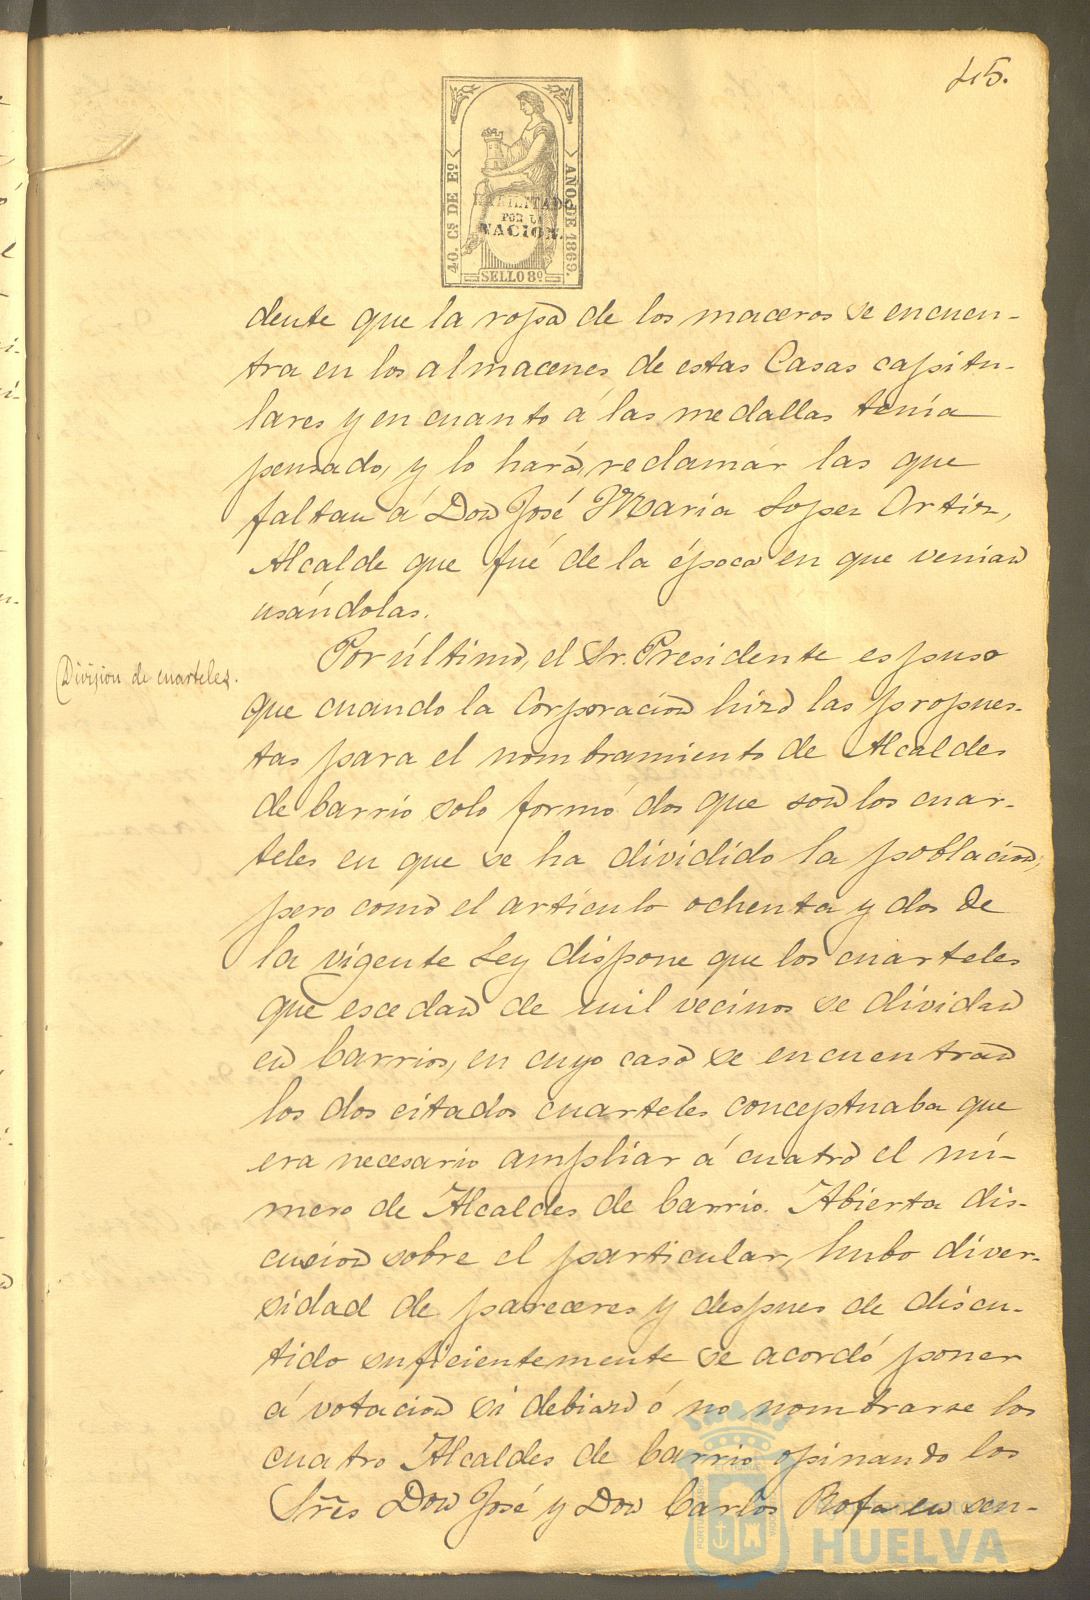 45.
40. Cs DE Eo
AÑO DE 1869.
HABILITADO
POR LA
NACION.
SELLO 8º
dente que la ropa de los maceros se encuen-
tra en los almacenes de estas Casas capitu-
lares y en cuanto á las medallas tenía
pensado, y lo hará, reclamár las que
faltan á Don José Maria Lopez Ortiz,
Alcalde que fué de la época en que venian
usándolas.
Division de cuarteles.
Por último, el Sr. Presidente espuso
que cuando la Corporacion hizo las propues-
tas para el nombramiento de Alcaldes
de barrio solo formó dos que son los cuar-
teles en que se ha dividido la poblacion,
pero como el articulo ochenta y dos de
la vigente Ley dispone que los cuarteles
que escedan de mil vecinos se dividan
en barrios, en cuyo caso se encuentran
los dos citados cuarteles conceptuaba que
era necesario ampliar á cuatro el nú-
mero de Alcaldes de barrio. Abierta dis-
cusion sobre el particular, hubo diver-
sidad de pareceres y despues de discu-
tido suficientemente se acordó poner
á votacion si debian ó no nombrarse los
cuatro Alcaldes de barrio opinando los
Sres Don José y Don Carlos Rofa en sen-
HUELVA